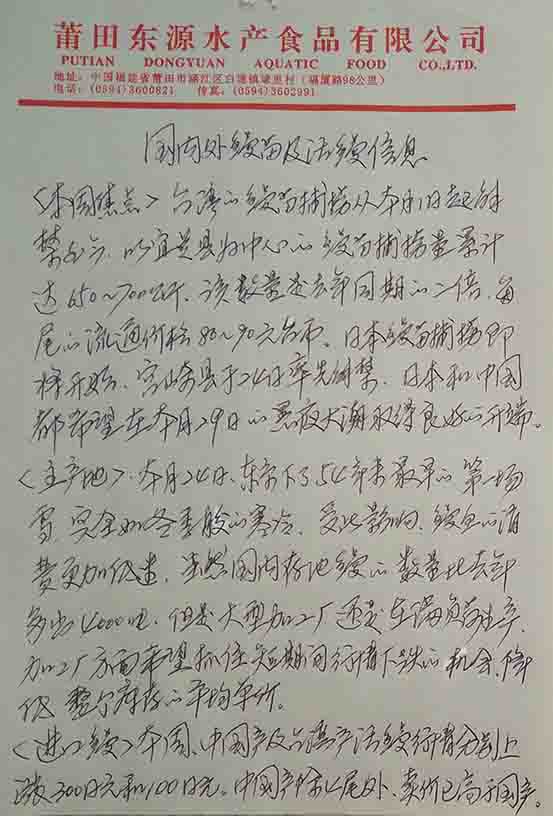 莆田东源水产食品有限公司
PUTIAN DONGYUAN AQUATIC FOOD CO.,LTD.
地址：中国福建省莆田市涵江区白塘镇埭里村（福厦路98公里）
电话：(0594)3600821 传真：(0594)3602991
国内外鳗苗及活鳗信息
〈本周焦点〉台湾的鳗苗捕捞从本月1日起解
禁至今，以宜兰县为中心的鳗苗捕捞量累计
达650～700公斤，该数量是去年同期的二倍，每
尾的流通价格80～90元台币。日本鳗苗捕捞即
将开始，宫崎县于24日率先解禁，日本和中国
都希望在本月29日的黑夜大潮取得良好的开端。
〈主产地〉本月24日，东京下了54年来最早的第一场
雪，完全如冬季般的寒冷，受此影响，鳗鱼的消
费更加低迷，当然国内存池鳗的数量比去年
多出4000吨，但是大型加工厂还是在满负荷生产，
加工厂方面希望抓住短期间行情下跌的机会，降
低整个库存的平均单价。
〈进口鳗〉本周，中国产及台湾产活鳗行情分别上
涨300日元和100日元，中国产除4尾外，卖价已高于国产。